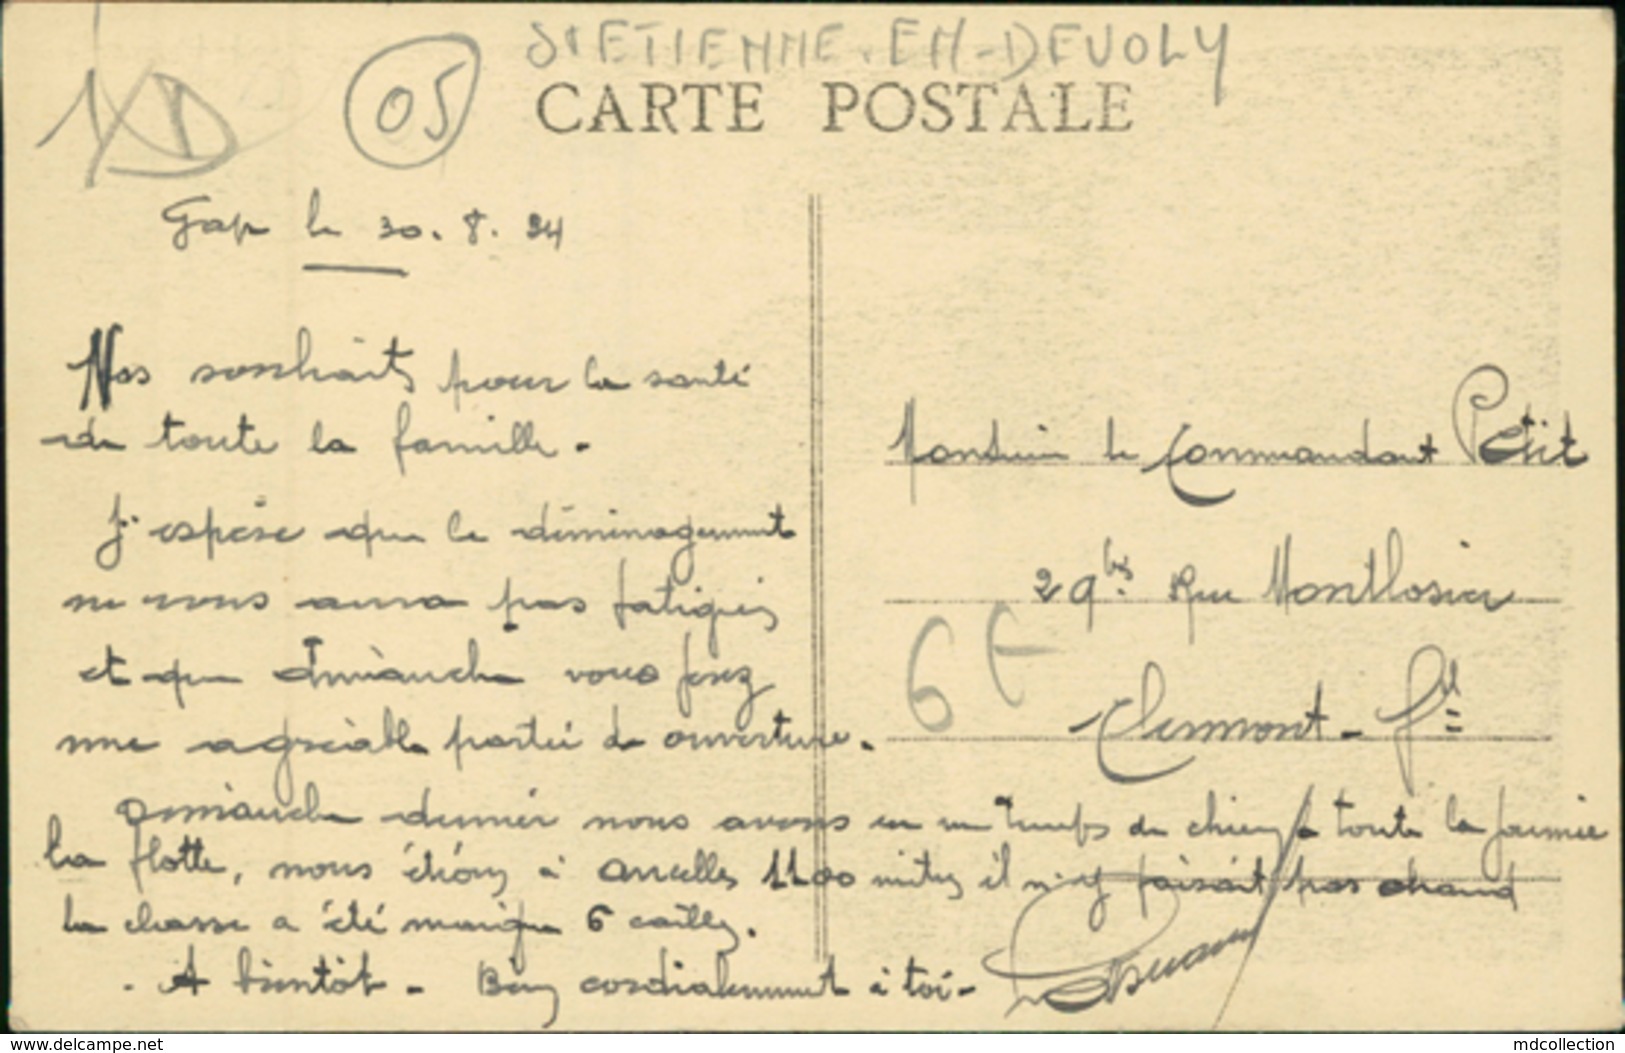 St ETIENNE-EN-DEVOLY
05
CARTE POSTALE
Gap le 30.8.24
Nos souhaits pour la santé
de toute la famille.
J'espère que le déménagement
ne vous aura pas fatigués
et que dimanche vous ferez
une agréable partie de ouverture.
Dimanche dernier nous avons eu un temps de chien toute la journée
la flotte, nous étions à Ancelles 1100 mètres il n'y faisait pas chaud
la chasse a été maigre 6 cailles.
A bientôt. Bien cordialement à toi.
Monsieur le Commandant Petit
29bis. Rue Montlosier
Clermont-Fd
6 €
www.delcampe.net
mdcollection